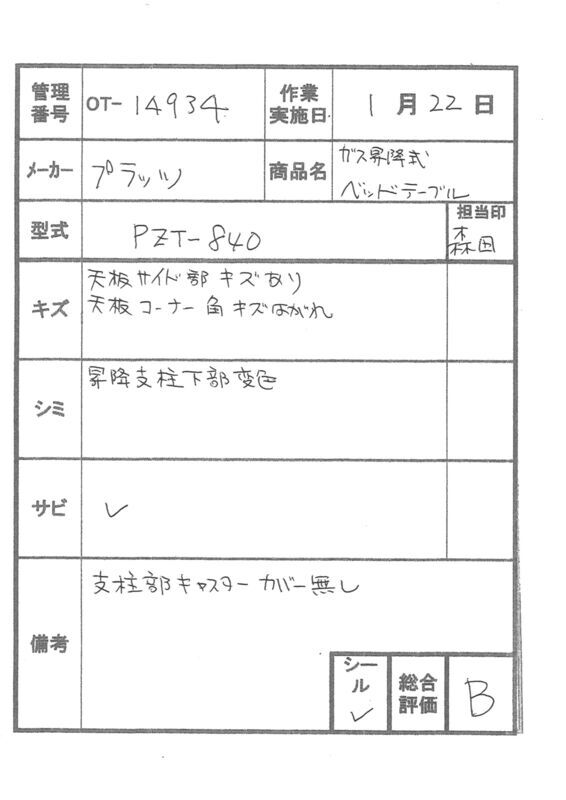 管理番号 OT- 14934 作業実施日 1月22日
メーカー プラッツ 商品名 ガス昇降式
ベッドテーブル
型式 PZT-840 担当印
森田
キズ 天板サイド部 キズあり
天板コーナー角キズはがれ
シミ 昇降支柱下部変色
サビ ✓
備考 支柱部キャスターカバー無し
シール ✓ 総合評価 B